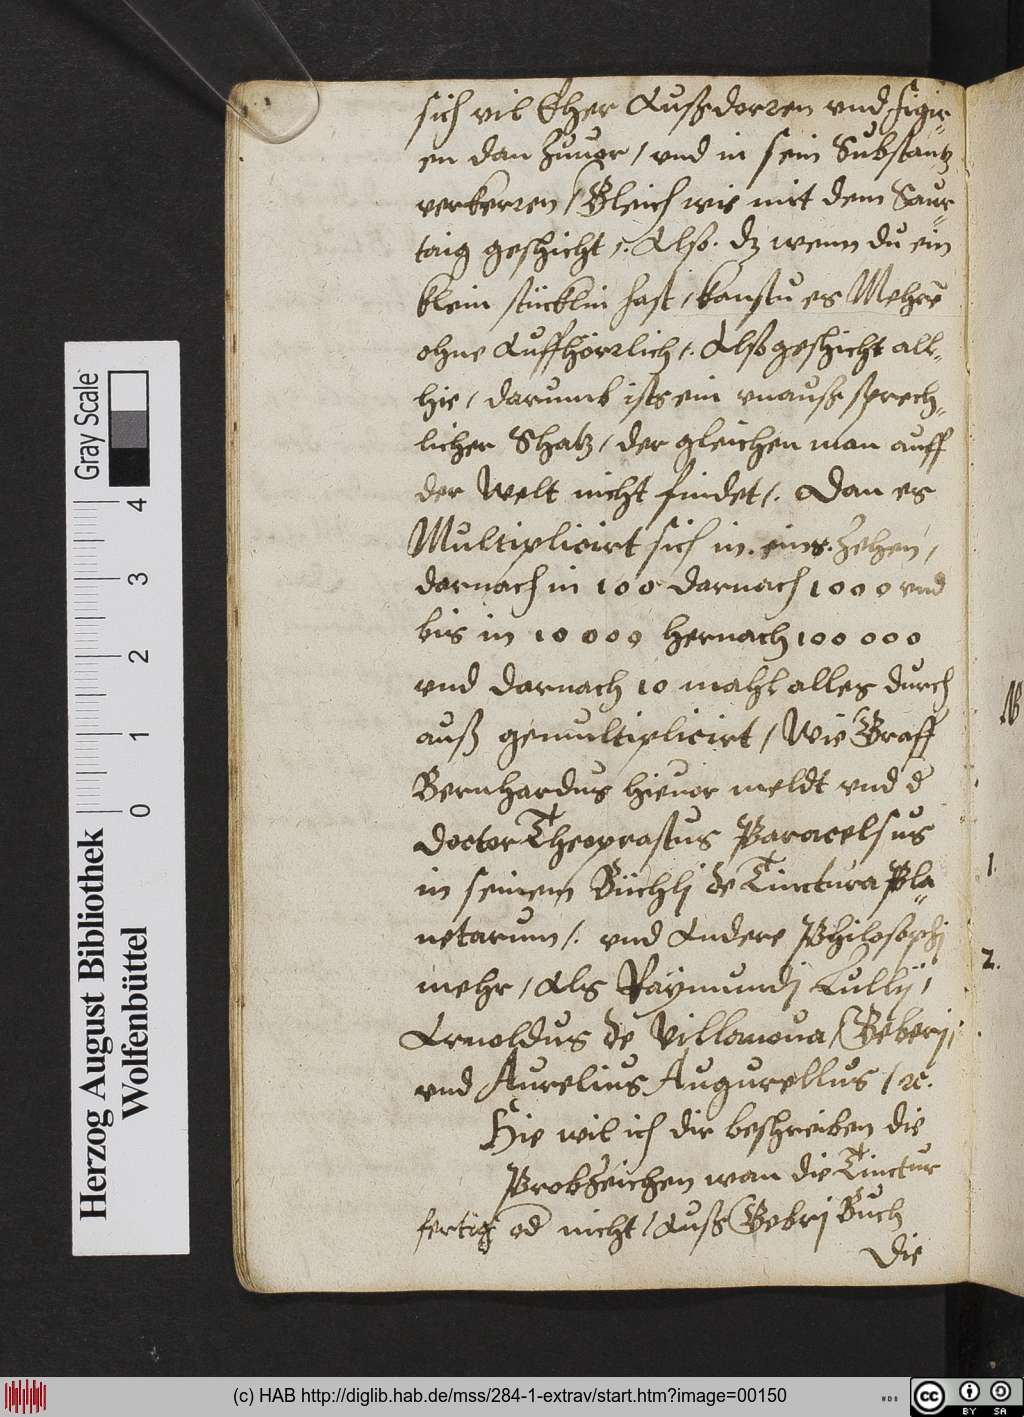 sich vil Eher Außdorren vnd figir-
en dan Zuuor / vnd in sein Substantz
verkerren / Gleich wie mit dem Saur-
taig geschicht /. Also. dz wenn du ein
klein stücklin hast / kanstu es Mehrē
ohne Auffhörrlich /. Also geschicht all-
hie / darumb ists ein vnaußsprech-
licher Shatz / der gleichen man auff
der Welt nicht findet /. Dan es
Multiplicirt sich in. eins. Zehen /
darnach in 100 darnach 1000 vnd
bis in 10000 hernach 100000
vnd darnach 10 mahl alles durch
auß gemultiplicirt / Wie Graff
Bernhardus hieuor meldt vnd d
Doctor Theoprastus Paracelsus
in seinem Büchlj de Tinctura Pla-
netarum /. vnd Andere Philosophj
mehr / Als Raymundj Lullij /
Arnoldus de Villanoua / Geberj /
vnd Aurelius Augurellus / ꝛc.
Hie wil ich dir beschreiben die
Probzeichen wan die Tinctur
fertig od nicht / Auß Gebrj Buch
Die
NB
1.
2.
Herzog August Bibliothek
Wolfenbüttel
Gray Scale
0 1 2 3 4
(c) HAB http://diglib.hab.de/mss/284-1-extrav/start.htm?image=00150
WDB
cc
BY SA